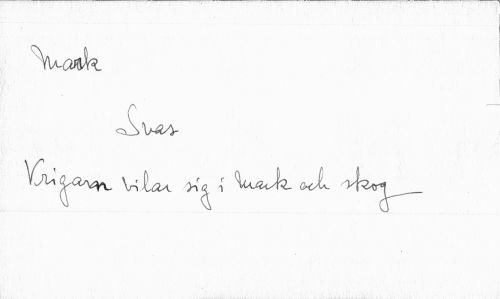 Mark
Svas
Krigarn vilar sig i mark och skog